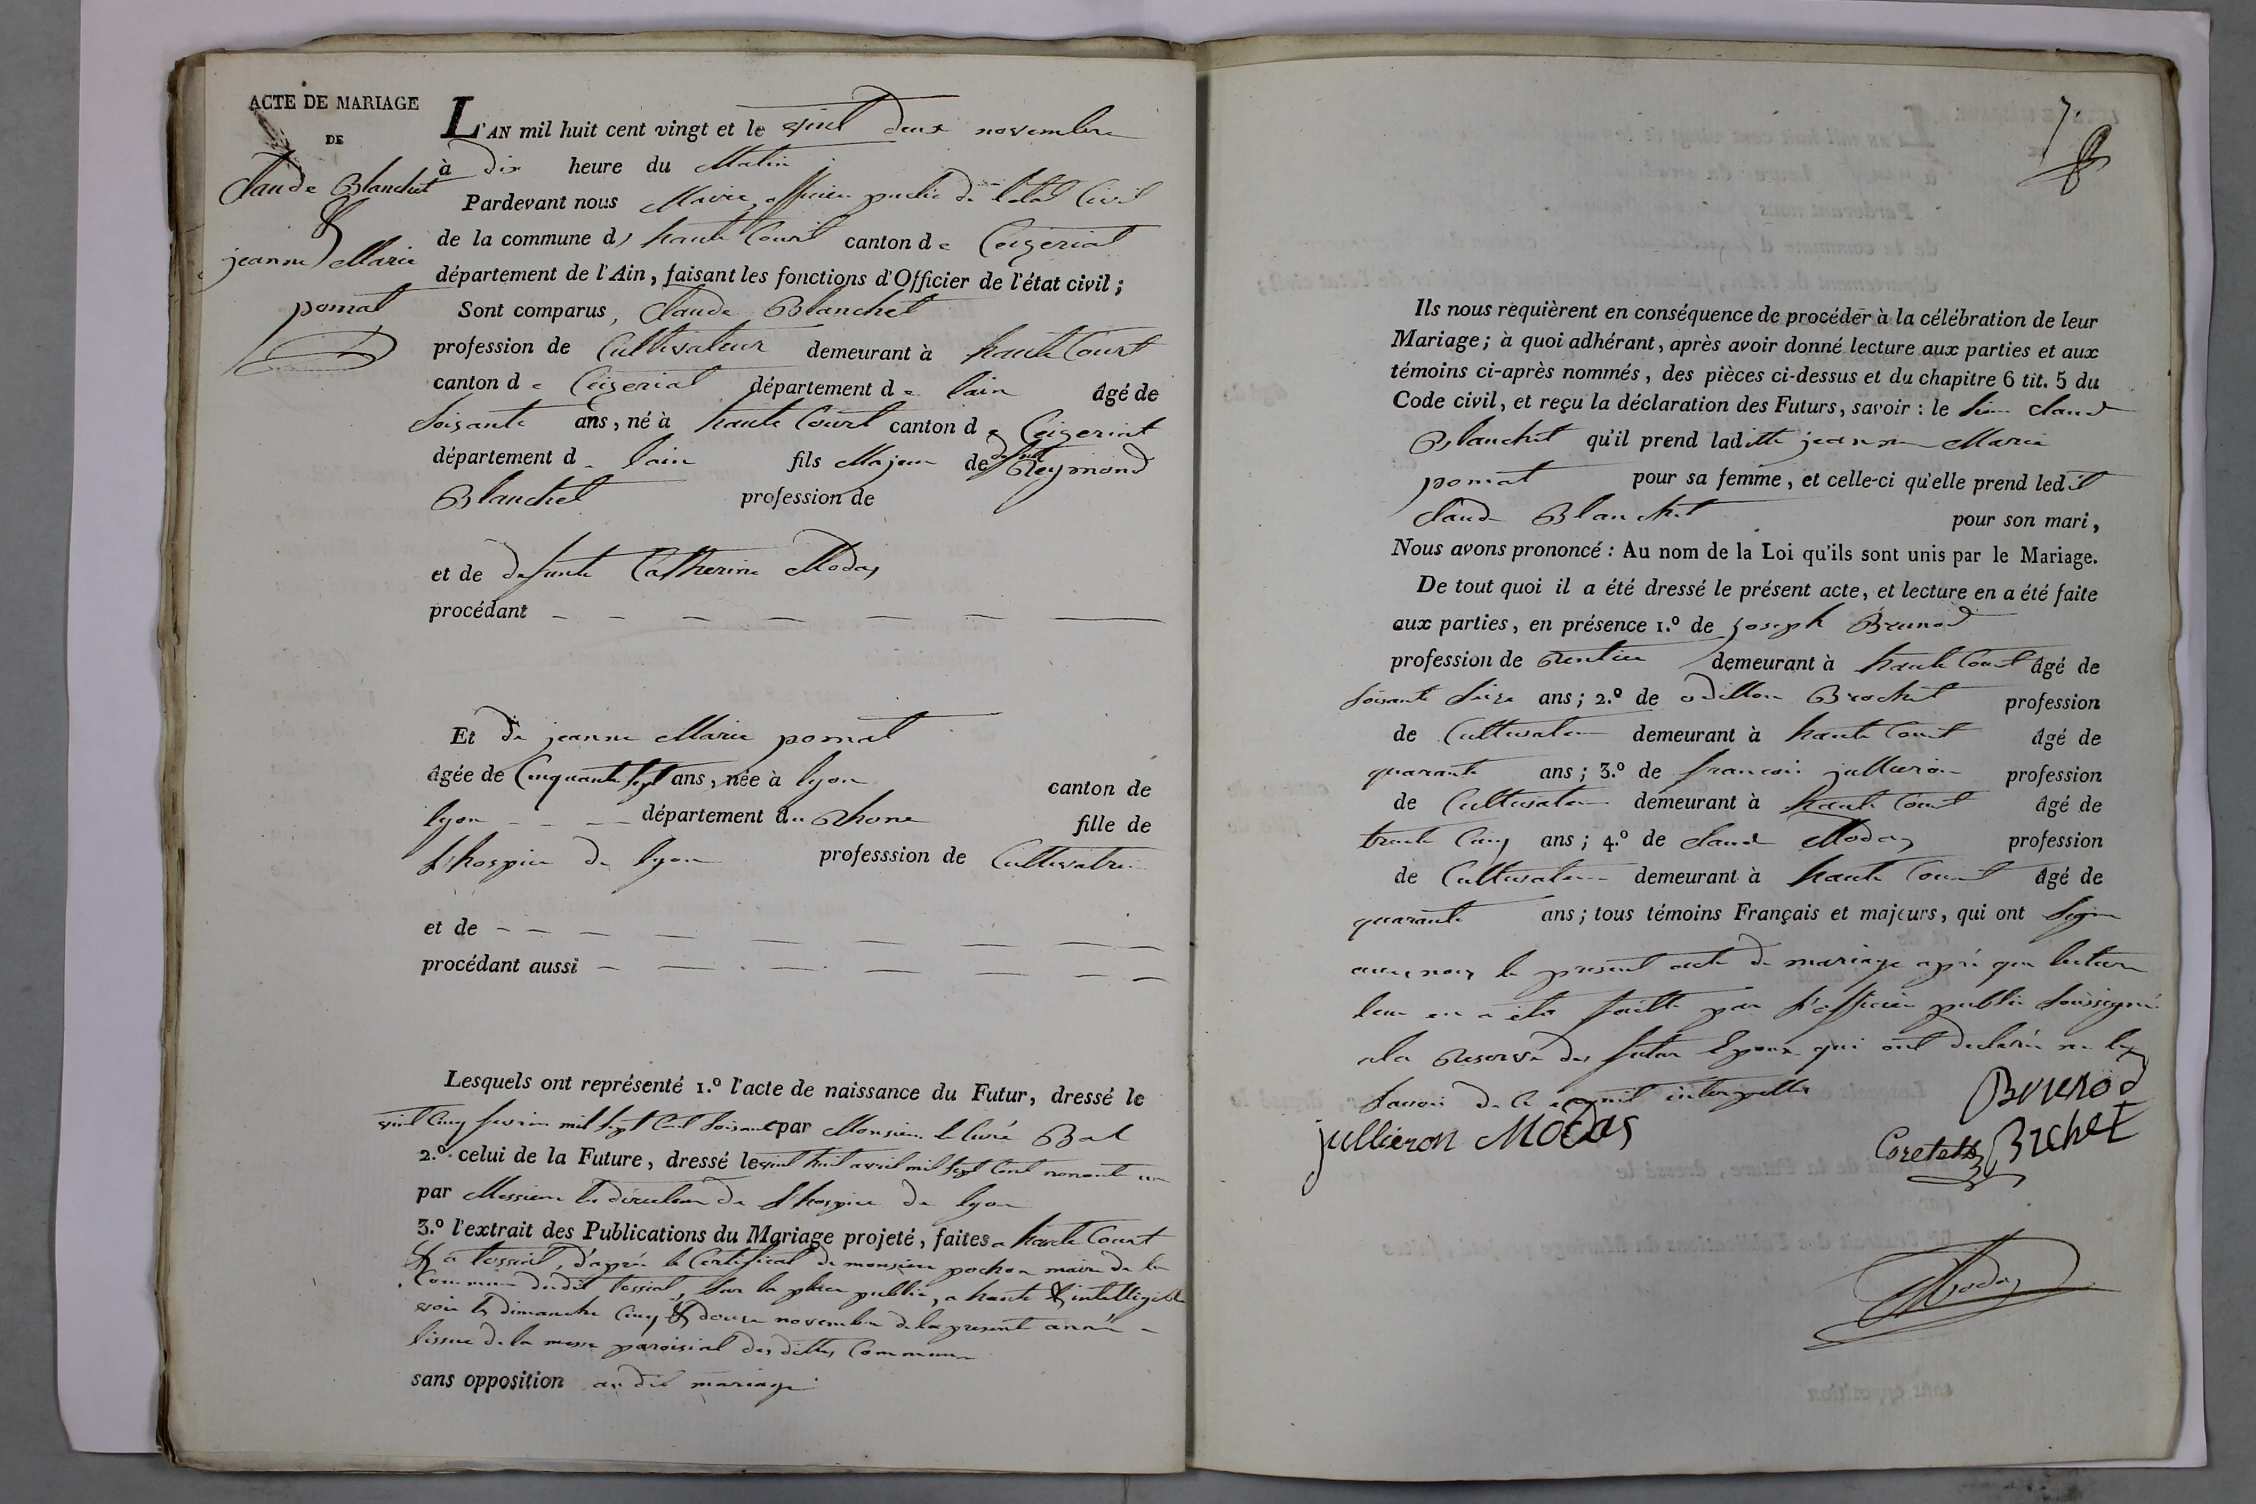 ACTE DE MARIAGE
DE
Claude Blanchet
&
jeanne Marie
pomat
L'AN mil huit cent vingt et le vint deux novembre
à dix heure du Matin
Pardevant nous Maire, officier public de l'etat Civil
de la commune d haute Court canton de Ceizeriat
département de l'Ain, faisant les fonctions d'Officier de l'état civil;
Sont comparus, Claude Blanchet
profession de Cultivateur demeurant à haute Court
canton de Ceizeriat département de lain âgé de
soisante ans, né à haute Court canton de Ceizeriat
département d lain fils Majeur de defunt Reymond
Blanchet profession de
et de defunte Catherine Modas
procédant
Et de jeanne Marie pomat
âgée de Cinquante sept ans, née à lyon canton de
lyon département du Rhone fille de
l'hospice de lyon professsion de Cultivatrice
et de
procédant aussi
Lesquels ont représenté 1.º l'acte de naissance du Futur, dressé le
vint Cinq fevrier mil sept Cent soisante par Monsieur le Curé Bal
2.º celui de la Future, dressé le vint huit avril mil sept Cent nonante un
par Messieur les directeur de l'hospice de lyon
3.º l'extrait des Publications du Mariage projeté, faites a haute Court
& a tossiat, d'après le Certificat de monsieur pochon maire de la
Commune dudit tossiat, sur la place public, a haute & intelligible
voix les dimanche Cinq & douze novembre de la presente année a
lissue de la messe paroisial des dittes Commune
sans opposition au dit mariage
7.
Ils nous requièrent en conséquence de procéder à la célébration de leur
Mariage; à quoi adhérant, après avoir donné lecture aux parties et aux
témoins ci-après nommés, des pièces ci-dessus et du chapitre 6 tit. 5 du
Code civil, et reçu la déclaration des Futurs, savoir: le claud
Blanchet qu'il prend laditte jeanne Marie
pomat pour sa femme, et celle-ci qu'elle prend ledit
Claude Blanchet pour son mari,
Nous avons prononcé: Au nom de la Loi qu'ils sont unis par le Mariage.
De tout quoi il a été dressé le présent acte, et lecture en a été faite
aux parties, en présence 1.º de joseph Brunod
profession de Rentier demeurant à haute Court âgé de
soisante seize ans; 2.º de odillon Brochet profession
de Cultivateur demeurant à haute Court âgé de
quarante ans; 3.º de francois jullieron profession
de Cultivateur demeurant à haute Court âgé de
trente Cinq ans; 4.º de claude Modas profession
de Cultivateur demeurant à haute Court âgé de
quarante ans; tous témoins Français et majeurs, qui ont signe
avec nous le present acte de mariage aprè que lecture
leur en a eté faitte par l'officier public soussigné
a la Reserve des futur Epoux qui ont declaré ne le
savoir de ce enquit interpellés
Brunod
jullieron Modas
Brchet
Modas